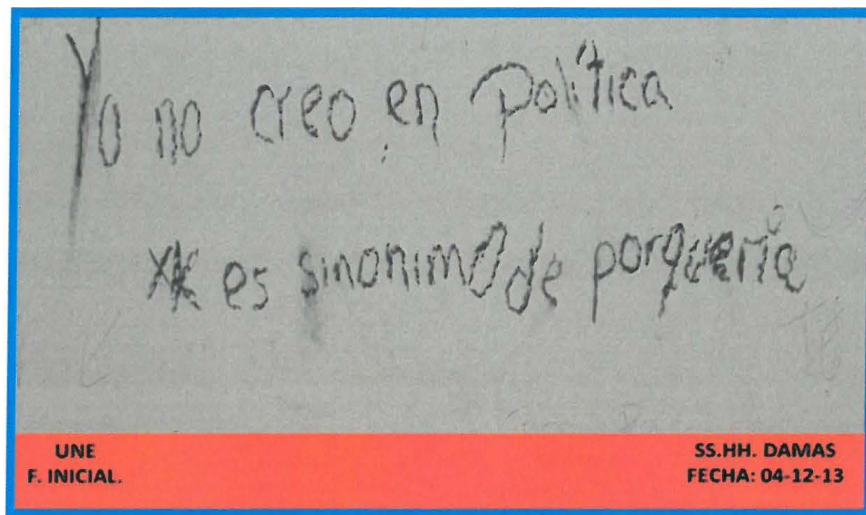 Yo no creo en Política
xk es sinonimo de porquería
UNE
F. INICIAL.
SS.HH. DAMAS
FECHA: 04-12-13